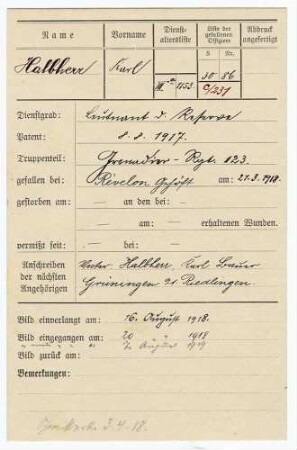 Name Vorname Dienst- altersliste Liste der gefallenen Offizpem. Abdruck angefertigt
S Nr.
Halbherr Karl III 1153 30 86
C/231
Dienstgrad: Leutnant d. Reserve
Patent: 8.8.1917.
Truppenteil: Grenadier-Regt. 123.
gefallen bei: Révelon Gehöft am: 21.3.1918.
gestorben am: — an den bei: —
— am: — erhaltenen Wunden.
vermißt seit: — bei: —
Anschreiben der nächsten Angehörigen
Vater: Halbherr, Karl Bauer
Grüningen Riedlingen.
Bild einverlangt am: 16. August 1918.
Bild eingegangen am: 20 " 1918
" " " am: August 1919
Bild zurück am:
Bemerkungen:
3.4.18.